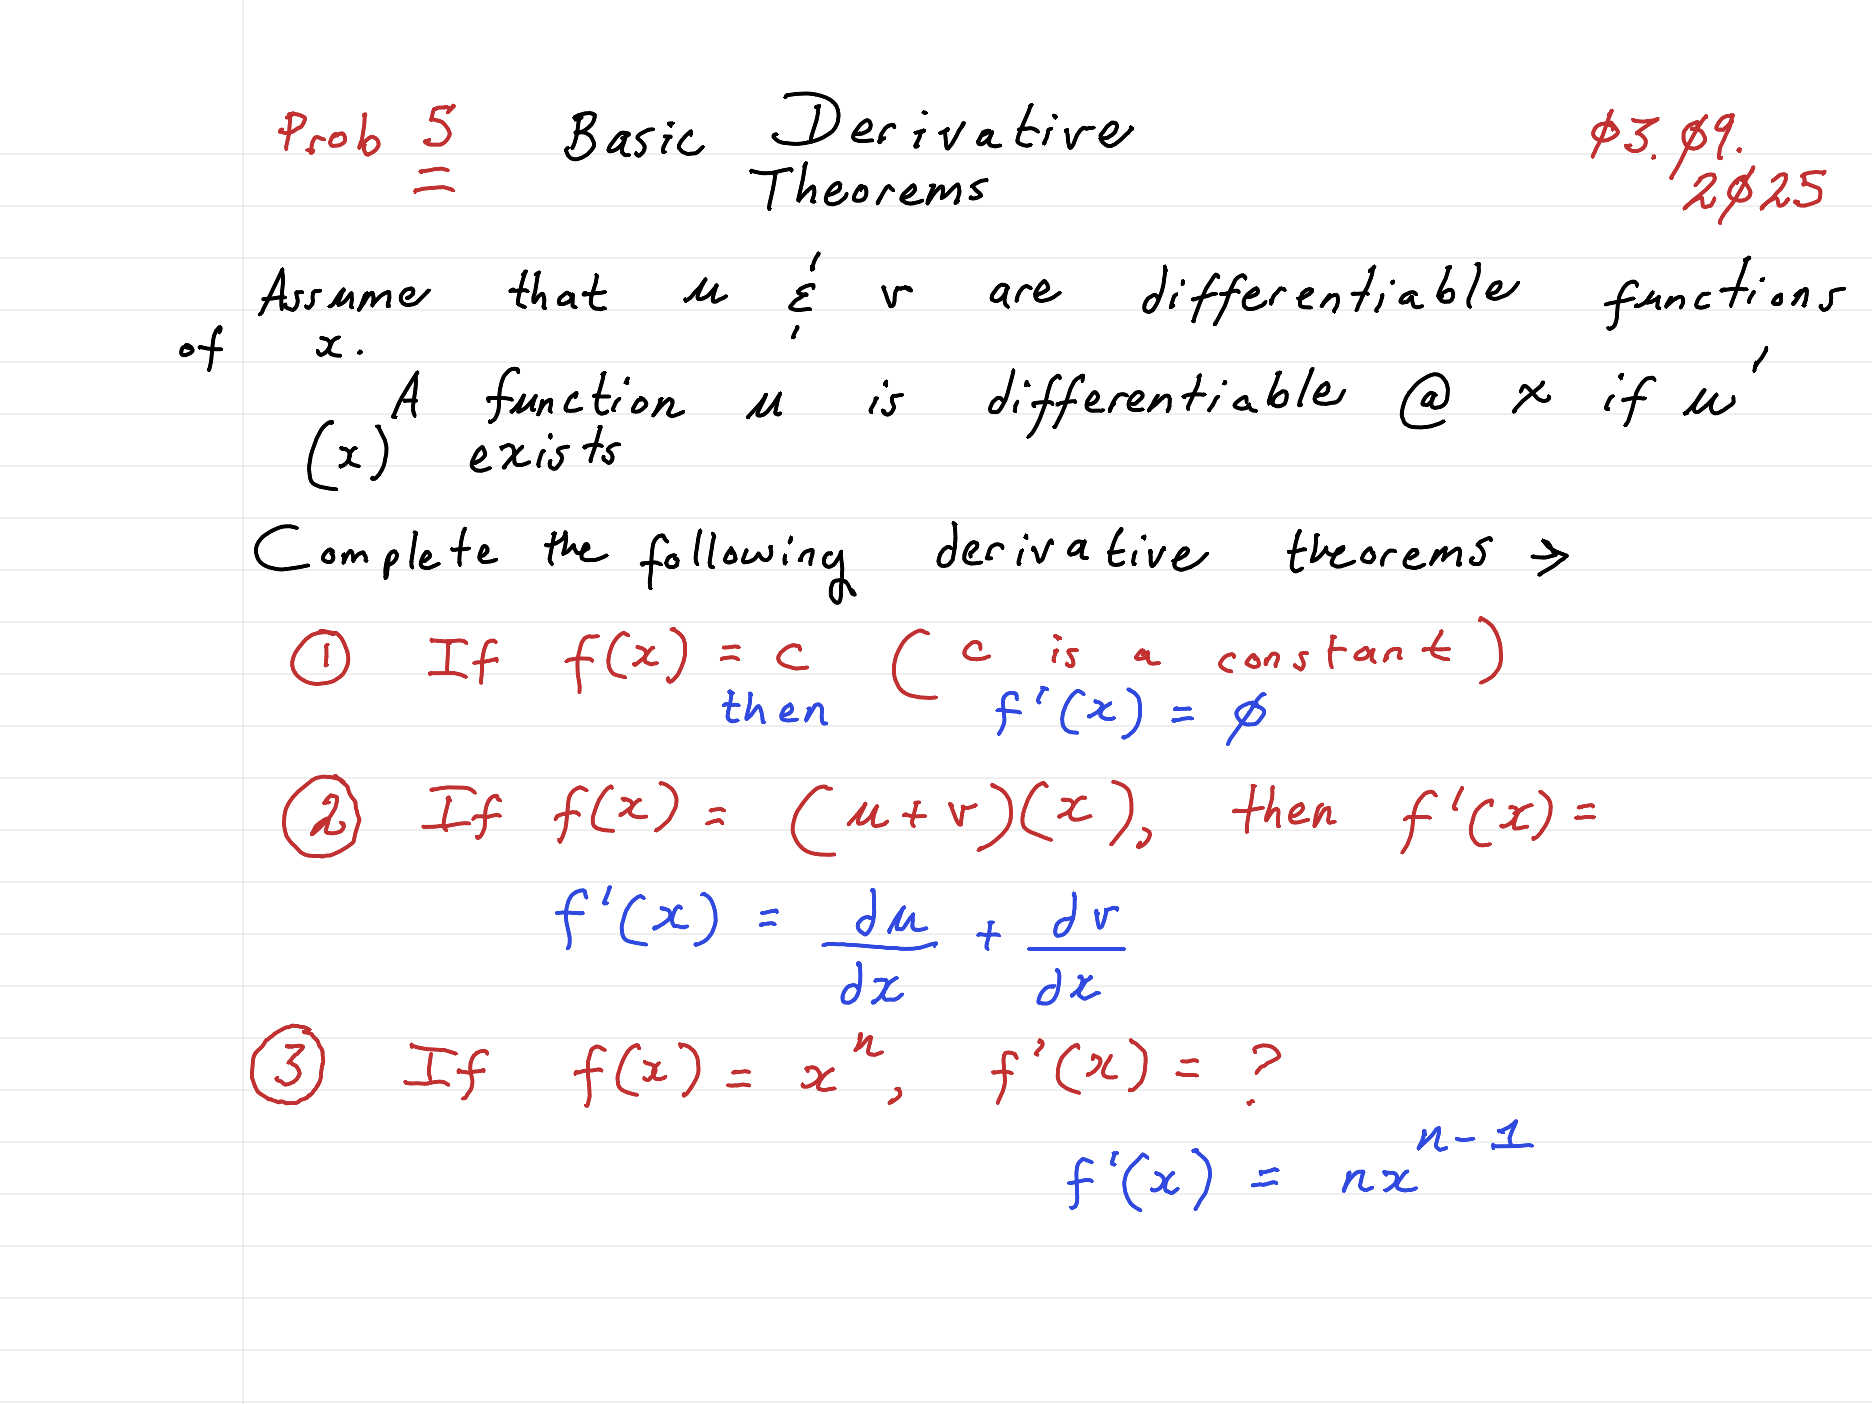 Prob 5 Basic Derivative Theorems
Ø3.Ø9.
2Ø25
Assume that u & v are differentiable functions
of x.
A function u is differentiable @ x if u'
(x) exists
Complete the following derivative theorems →
① If f(x) = c (c is a constant)
then f'(x) = Ø
② If f(x) = (u+v)(x), then f'(x) =
f'(x) = du/dx + dv/dx
③ If f(x) = xⁿ, f'(x) = ?
f'(x) = nxⁿ⁻¹